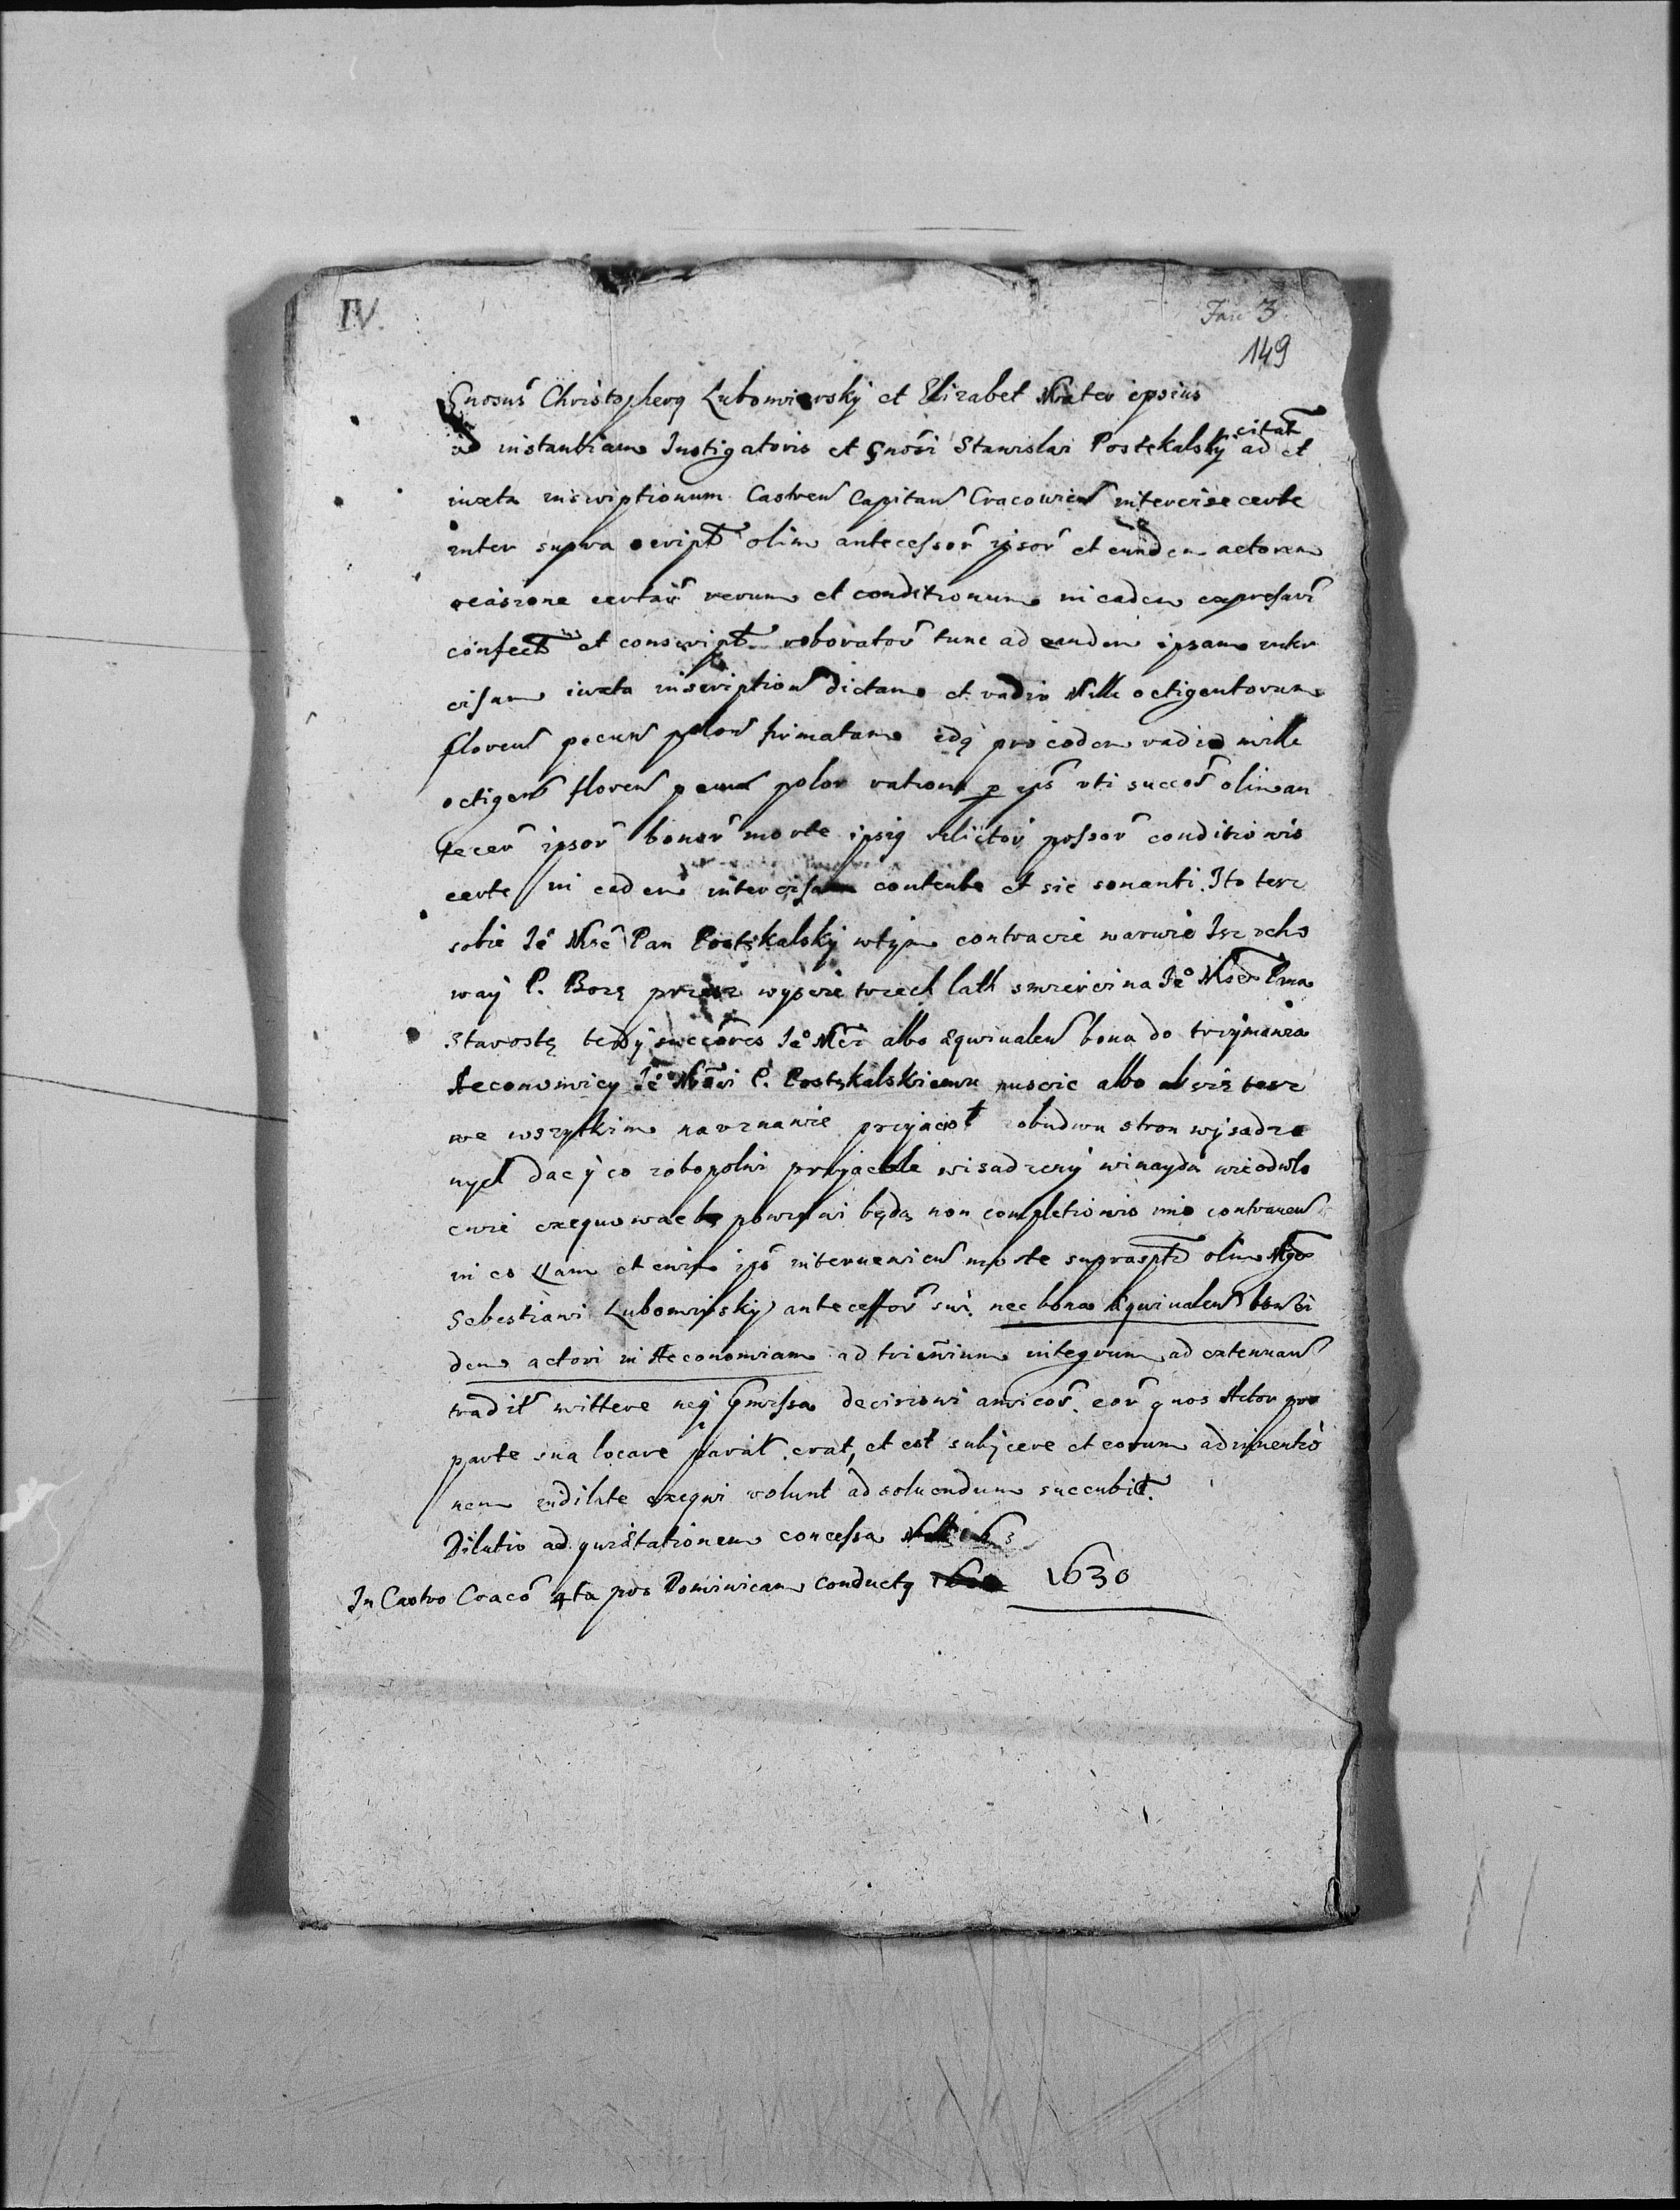 IV.
Fasc 3
149
Gnosus Christopherq Lubomiersky et Elizabet Mater ipsius
ad instantiam Instigatoris et Gnosi Stanislai Postękalsky citat ad et
iuxta inscriptionum Castren Capitan Cracovien intercise certe
inter supra script olim antecessor ipsor et eundem actorem
ocasione certar rerum et conditionum in eadem expressar
confect et conscript roborator tunc ad eandem ipsam inter
cisam iuxta inscription dictam et vadio Mille octigentorum
floren pecun polon firmatam idq pro eodem vadio mille
octigen floren pecun polon ration p ips uti succes olim an
tecer ipsor bonor morte ipsiq relictor possor conditionis
certe in eadem intercisa contente et sic sonanti. Ito tesz
sobie Je Msc Pan Postękalsky wtym contracie waruie Isz vcho
way P. Boze przed wyscie trzech lath smierci na Je Msc Pana
Starostę tedy succores Je Mci albo Equivalen bona do trzymania
Aeconomicy Je Msci P. Postękalskiemu puscic albo tesz
we wszytkim na vznanie przyaciol zobudwu stron wysadzo
nych dac y co zobopolni przyaciele wisadzeny winayda nieodwlo
cnie exequowac powinni będą non completionis imo contraven
in eo quam et enim ips intervenien morte suprasptd olim Mgd
Sebestiani Lubomirsky antecessor sui. nec bona Equivalen
dem actori in Aeconomiam ad trienium integrum ad extenuan
tradit mittere neq decisioni amicor. eor quos Actor pro
parte sua locare parat. erat, et est subjcere et eorum adinventio
nem indilate exequi volunt ad soluendum succubit.
Dilatio ad quietationem concessa
In Castro Craco 4ta pos Dominicam Conductq 1630